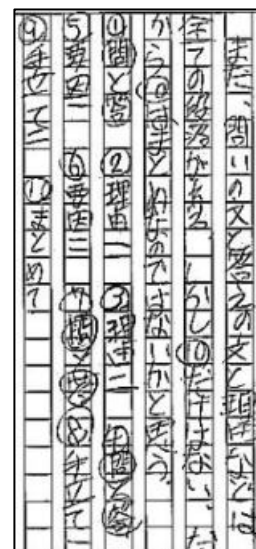 まだ、問いの文と答えの文と理由などは
全ての役名がある。しかし⑩だけはない。だ
から⑩はまとめなのではないかと思う。
①問と答 ②理由一 ③理由二 ④問と答
⑤要因一 ⑥要因二 ⑦問と答 ⑧手立て一
⑨手立て二 ⑩まとめ